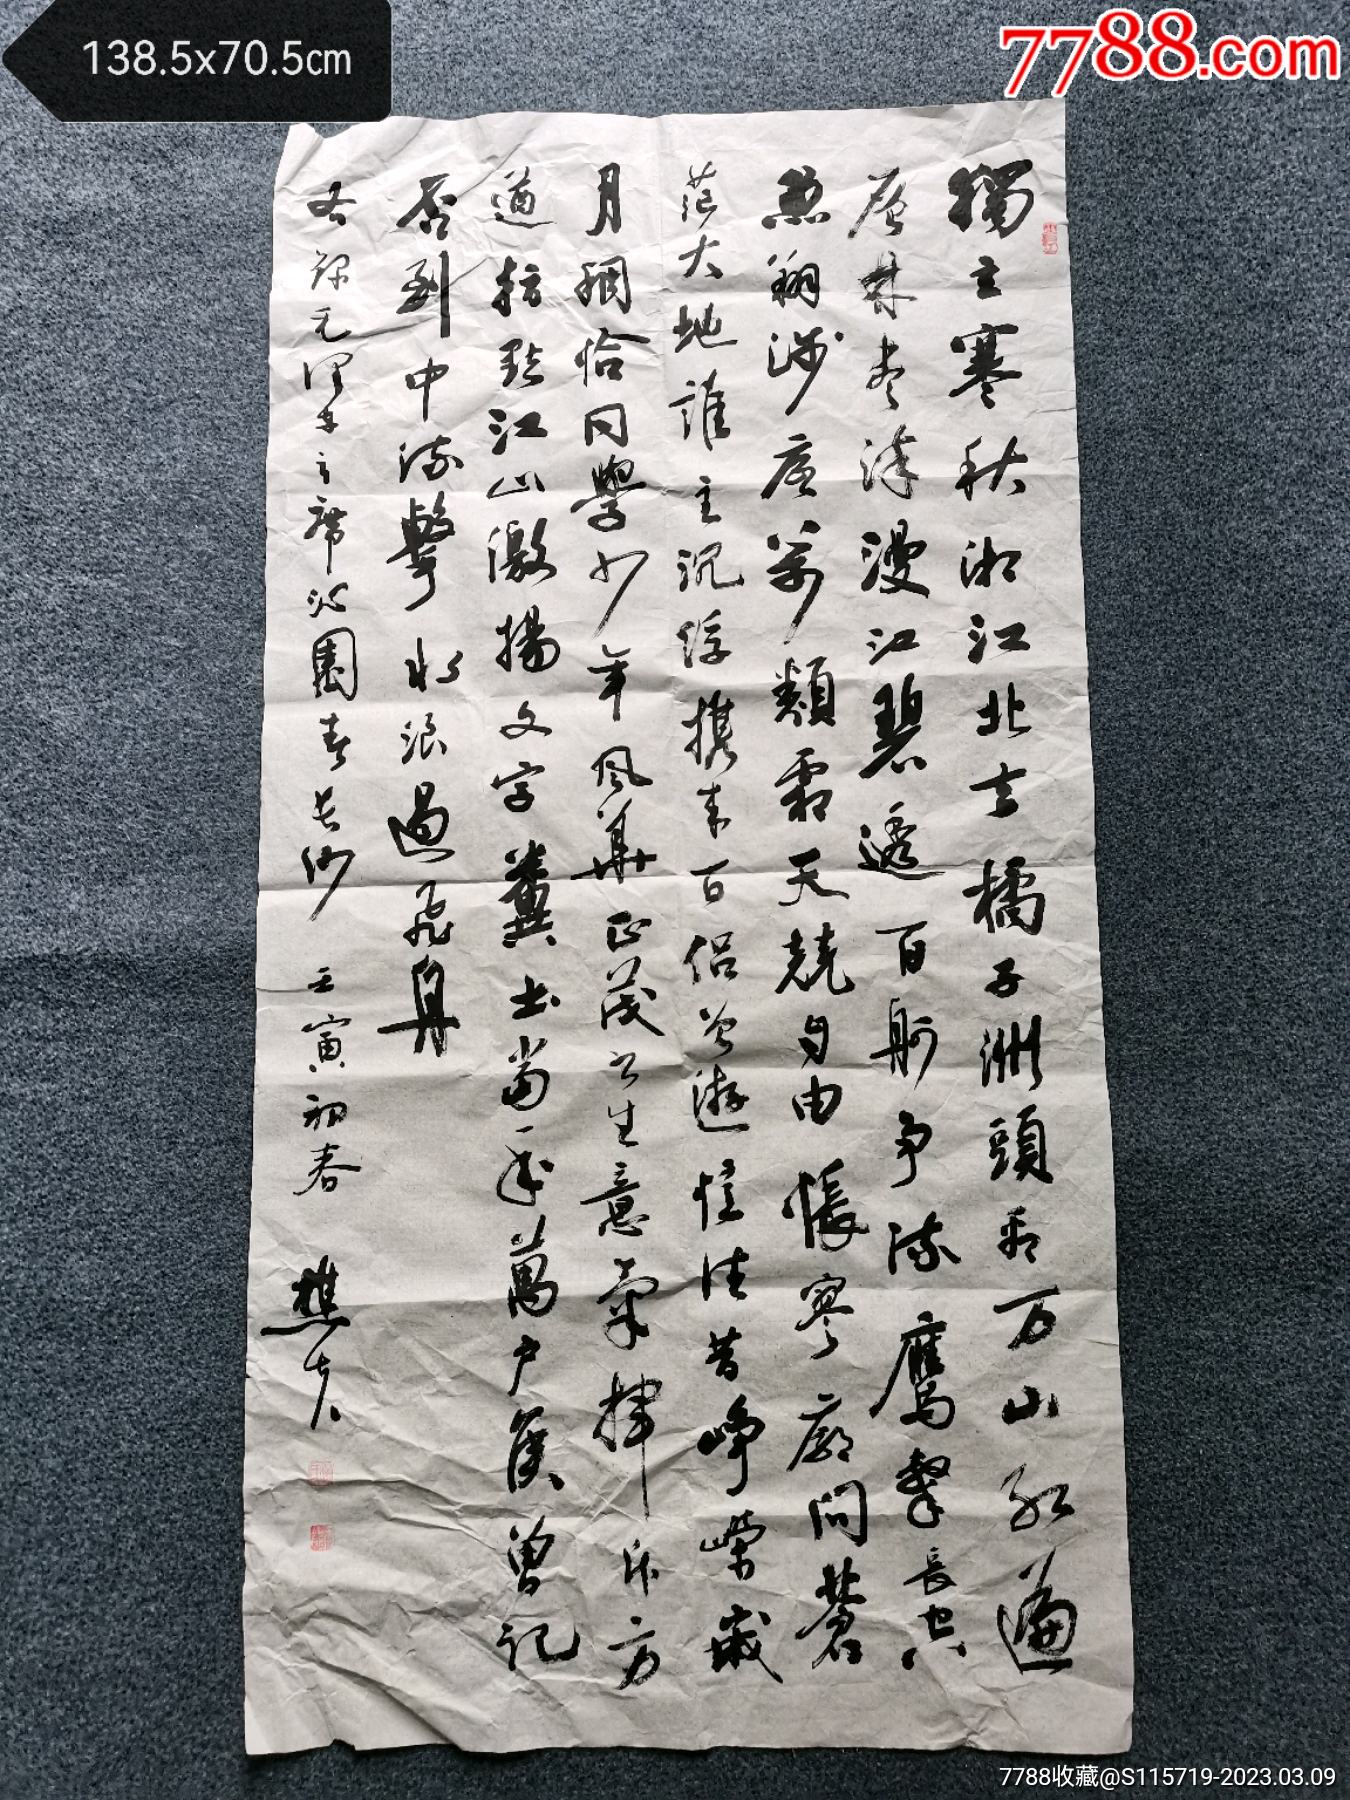 138.5x70.5cm
7788.com
獨立寒秋湘江北去橘子洲頭看万山紅遍
层林尽染漫江碧透百舸争流鷹擊長空
魚翔浅底萬類霜天競自由悵寥廓問蒼
茫大地誰主沉浮携来百侣曾遊憶往昔崢嶸歲
月稠恰同學少年风華正茂书生意氣揮斥方
遒指點江山激揚文字糞土當年萬户侯曾記
否到中流擊水浪遏飛舟
右錄毛澤东主席沁園春長沙 壬寅初春 樵夫
7788收藏@S115719-2023.03.09